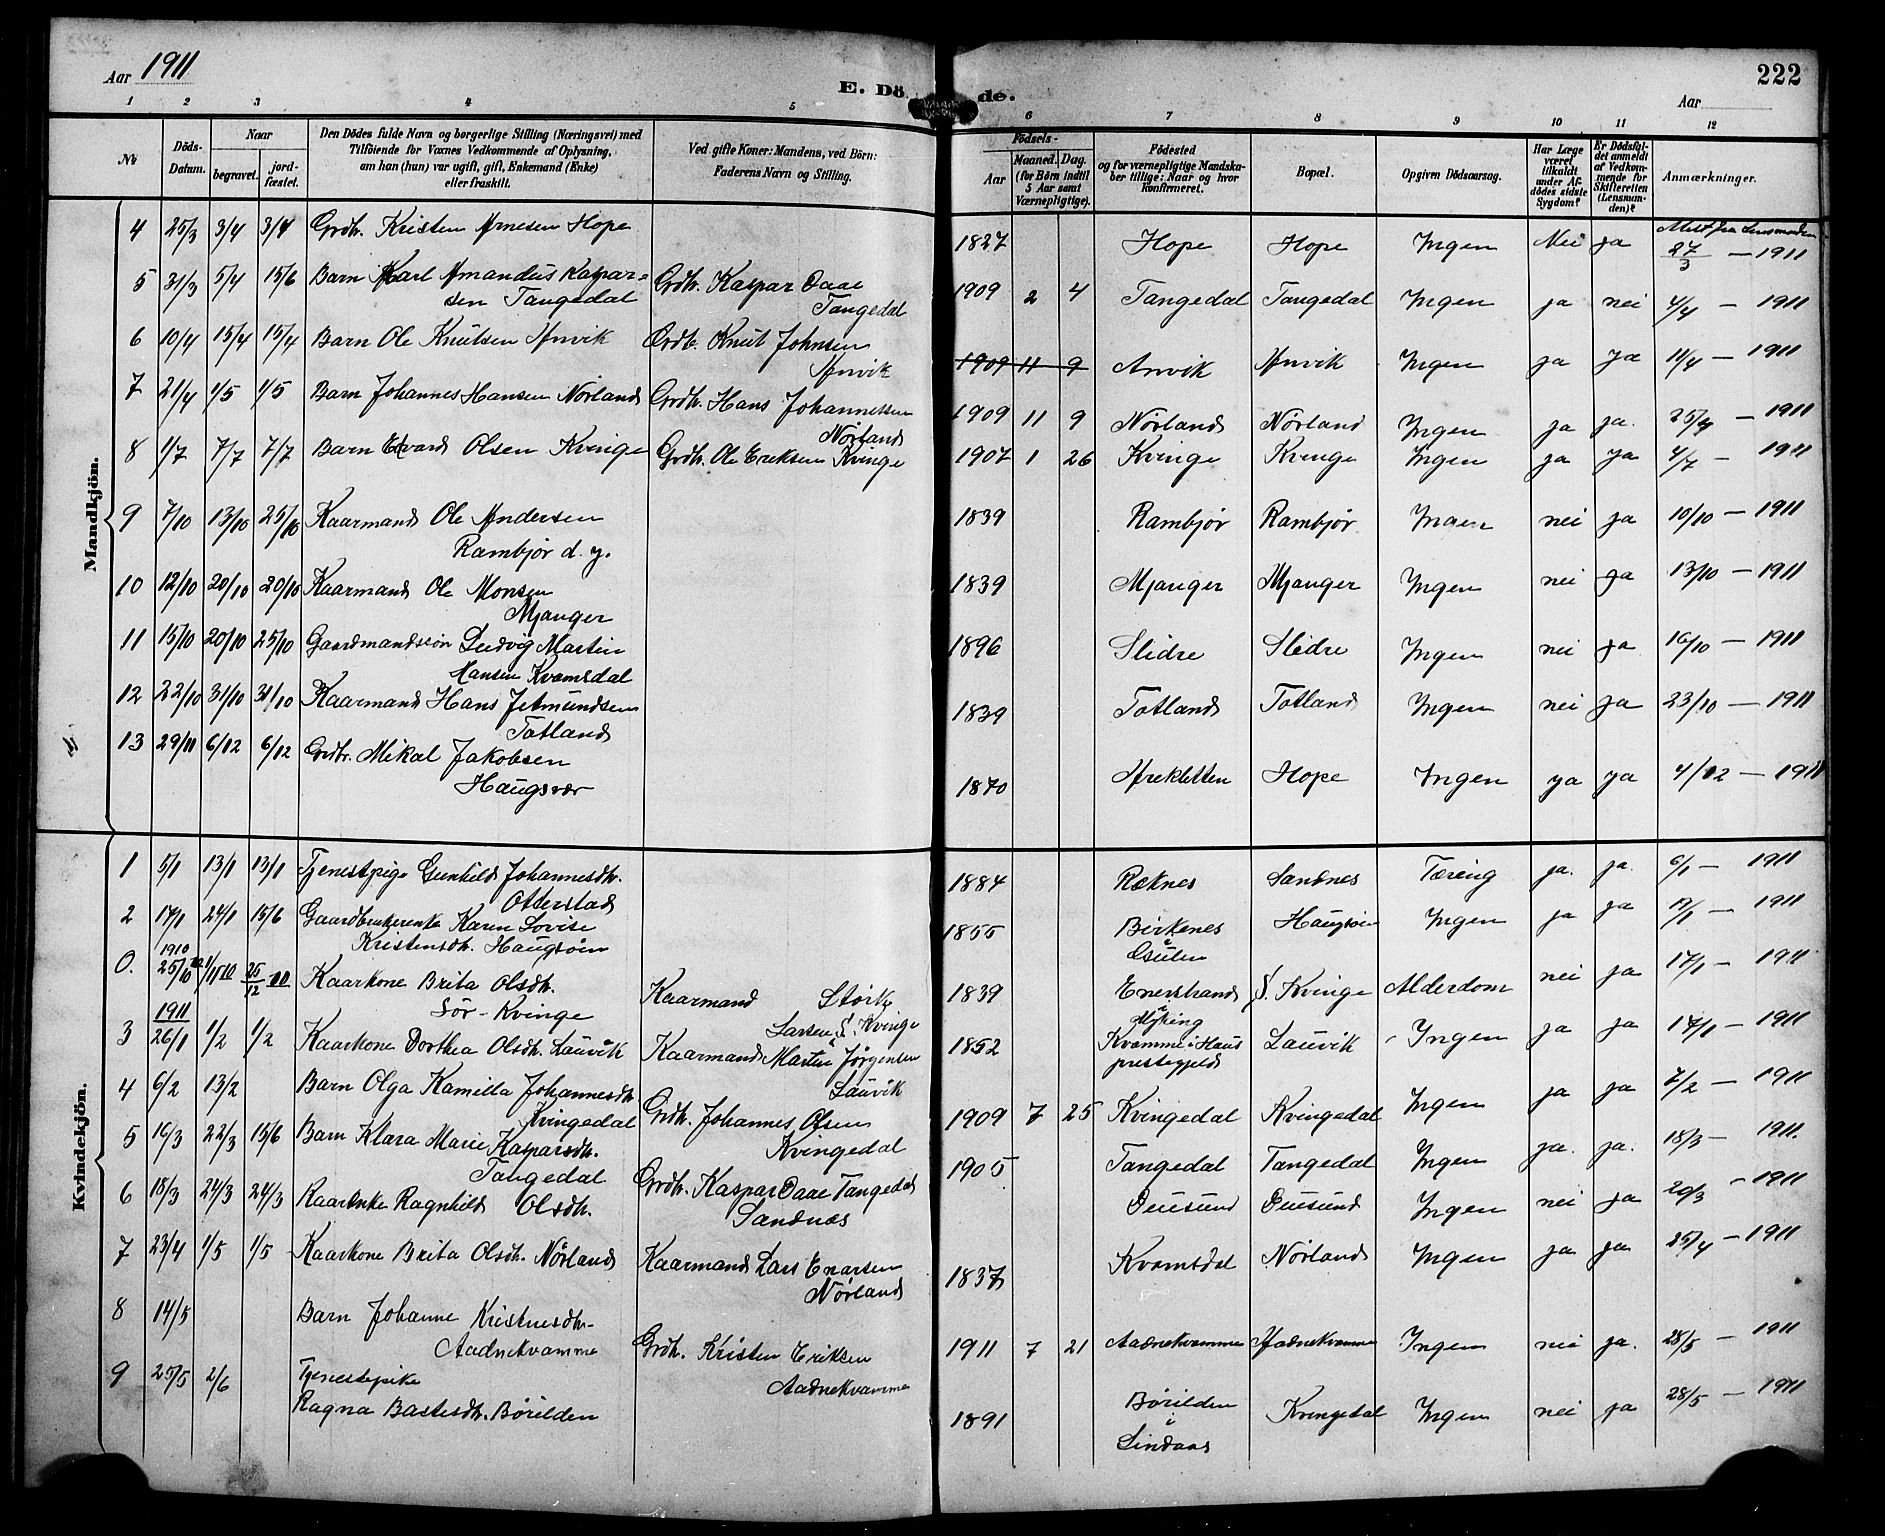 Aar 1911
E. Dö de.
222
Aar
1 2 3 4 5 6 7 8 9 10 11 12
No
Döds-Datum.
Naar
begravet.
jord-fæstet.
Den Dödes fulde Navn og borgerlige Stilling (Næringsvei) med
Tilföiende for Voxnes Vedkommende af Oplysning,
om han (hun) var ugift, gift, Enkemand (Enke)
eller fraskilt.
Ved gifte Koner: Mandens, ved Börn:
Faderens Navn og Stilling.
Födsels-
Aar
Maaned. Dag.
(for Börn indtil
5 Aar samt
Værnepligtige).
Födested
og for værnepligtige Mandska-
ber tillige: Naar og hvor
konfirmeret.
Bopæl.
Opgiven Dödsaarsag.
Har Læge
været
tilkaldt
under Af-
dödes sidste
Sygdom?
Er Dödsfal-
det anmeldt
af Vedkom-
mende for
Skifteretten
(Lensman-
den)?
Anmærkninger.
Mandkjön.
4 25/3 3/4 3/4 Grdbr. Kristen Arnesen Hope 1827 Hope Hope Ingen Nei ja Meldt fra Lensmanden 27/3 — 1911
5 31/3 5/4 15/6 Barn Karl Amandus Kaspar-
sen Tangedal Grdbr. Kaspar Daae
Tangedal 1909 2 4 Tangedal Tangedal Ingen ja nei 4/4 — 1911
6 10/4 15/4 15/4 Barn Ole Knutsen Anvik Grdbr. Knut Johnsen
Anvik 1909 11 9 Anvik Anvik Ingen ja ja 11/4 — 1911
7 21/4 1/5 1/5 Barn Johannes Hansen Nörland Grdbr. Hans Johannessen
Nörland 1909 11 9 Nörland Nörland Ingen ja ja. 25/4 — 1911
8 1/7 7/7 7/7 Barn Edvard Olsen Kvinge Grdbr. Ole Eriksen Kvinge 1907 1 26 Kvinge Kvinge Ingen ja ja 4/7 — 1911
9 7/10 13/10 25/10 Kaarmand Ole Andersen
Rambjör d. y. 1839 Rambjör Rambjör Ingen nei ja 10/10 — 1911
10 12/10 20/10 20/10 Kaarmand Ole Monsen
Mjanger 1839 Mjanger Mjanger Ingen nei ja 13/10 — 1911
11 15/10 20/10 25/10 Gaardmandssön Ludvig Martin
Hansen Kvamsdal 1896 Slidre Slidre Ingen nei ja 16/10 — 1911
12 22/10 31/10 31/10 Kaarmand Hans Jetmundsen
Totland 1839 Totland Totland Ingen nei ja 23/10 — 1911
13 29/11 6/12 6/12 Grdbr. Mikal Jakobsen
Haugsvær 1870 Hope Ingen ja ja 4/12 — 1911
Kvindekjön.
1 5/1 13/1 13/1 Tjenestpige Gunhild Johannesdtr.
Otterstad 1884 Røknes Sandnes Tæring ja. ja. 6/1 — 1911
2 17/1 24/1 15/6 Gaardbrukerenke Karen Lovise
Kristensdtr. Haugsöen 1855 Birkenes
Haugsöen Ingen ja ja — 1911
0. 1910
25/10 25/12 10 Kaarkone Brita Olsdtr.
Sör-Kvinge Kaarmand Störk
Larsen S. Kvinge 1839 Enerstrand
i Myking S. Kvinge Alderdom nei ja 17/1 — 1911
1911
3 26/1 1/2 1/2 Kaarkone Dorthea Olsdtr. Lauvik Kaarmand Martin Jörgensen
Lauvik 1852 Kvamme i Haus
prestegjeld Lauvik Ingen ja ja 17/1 — 1911
4 6/2 13/2 Barn Olga Kamilla Johannesdtr.
Kvingedal Grdbr. Johannes Olsen
Kvingedal 1909 7 25 Kvingedal Kvingedal Ingen ja ja 7/2 — 1911
5 16/3 22/3 15/6 Barn Klara Marie Kasparsdtr.
Tangedal Grdbr. Kaspar Daae Tangedal 1905 Tangedal Tangedal Ingen ja. ja. 18/3 — 1911.
6 18/3 24/3 24/3 Kaarenke Ragnhild Olsdtr.
Sandnæs Ingen nei ja 20/3 - 1911
7 23/4 1/5 1/5 Kaarkone Brita Olsdtr. Nörland Kaarmand Lars Enersen
Nörland 1837 Kvamsdal Nörland Ingen ja ja 25/4 — 1911
8 14/5 Barn Johanne Kristensdtr.
Aadnekvamme Grdbr. Kristen Eriksen
Aadnekvamme 1911 7 21 Aadnekvamme Aadnekvamme Ingen nei ja. 28/5 — 1911
9 25/5 2/6 Tjenestepike
Ragna Bastesdtr. Börilden 1891 Börilden
i
Lindaas Kvingedal Ingen nei ja 28/5 — 1911